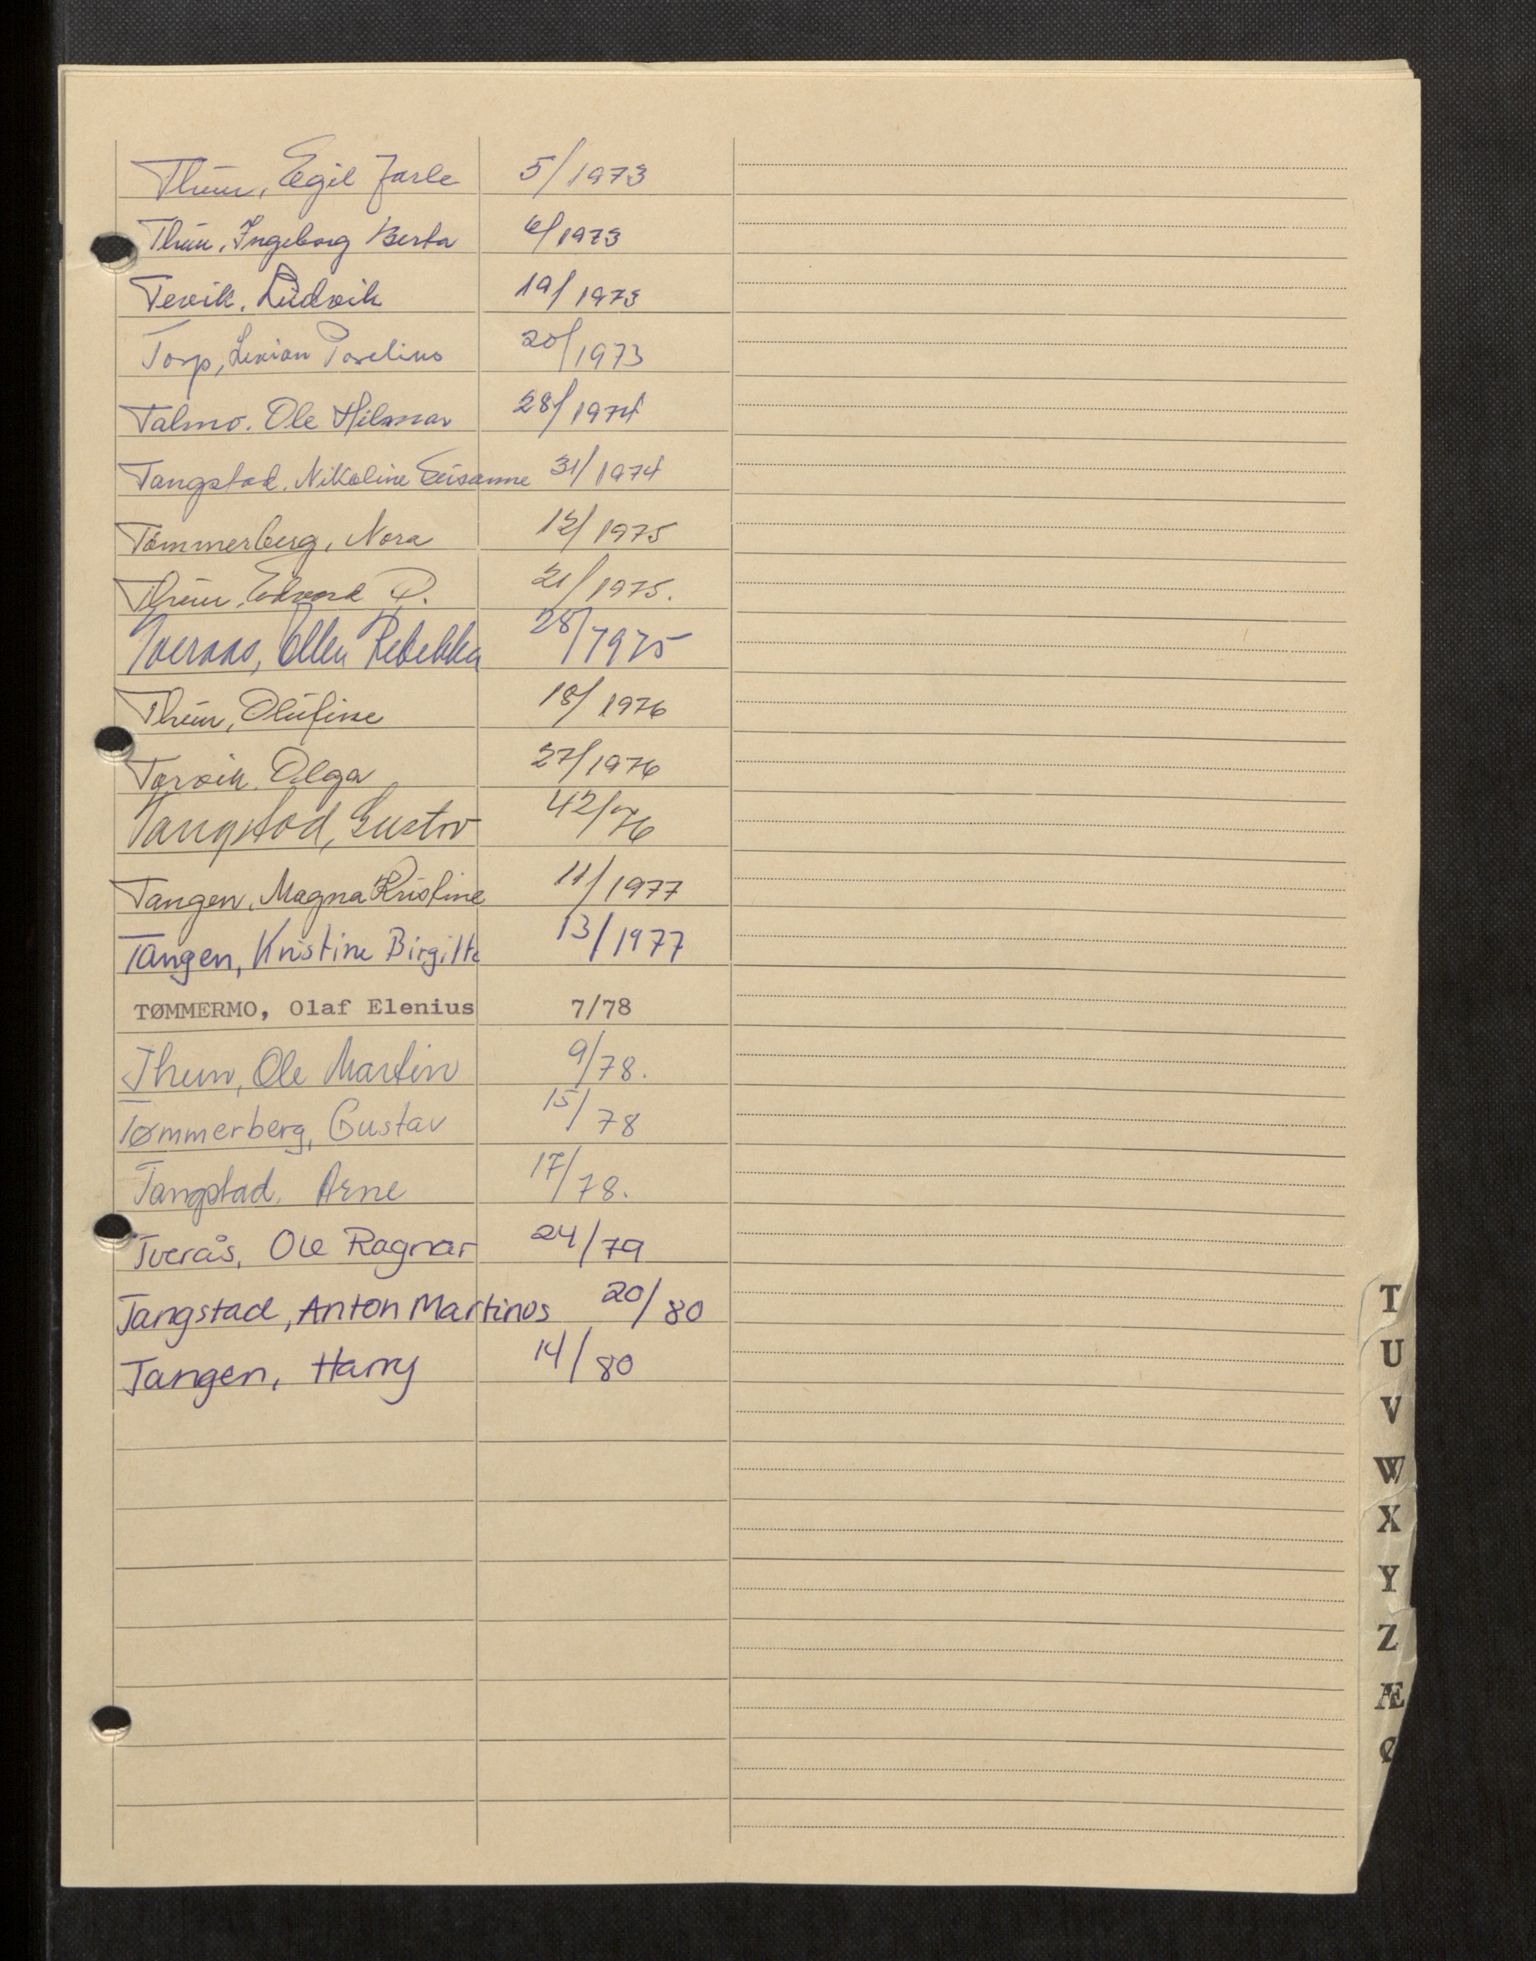 Thun, Egil Jarle 5/1973
Thun, Ingeborg Berta 6/1973
Tervik, Ludvik 19/1973
Torp, Levian Poselius 20/1973
Talmo, Ole Hilmar 28/1974
Tangstad, Nikoline Susanne 31/1974
Tømmerberg, Nora 12/1975
Thun, Edvard P. 21/1975.
Tveraas, Ellen Rebekka 28/1975
Thun, Olufine 18/1976
Torvik, Olga 27/1976
Tangstad, Gustav 42/76
Tangen, Magna Kristine 11/1977
Tangen, Kristine Birgitte 13/1977
TØMMERMO, Olaf Elenius 7/78
Thun, Ole Martin 9/78.
Tømmerberg, Gustav 15/78
Tangstad, Arne 17/78.
Tverås, Ole Ragnar 24/79
Tangstad, Anton Martinus 20/80
Tangen, Harry 14/80
T
U
V
W
X
Y
Z
Æ
Ø